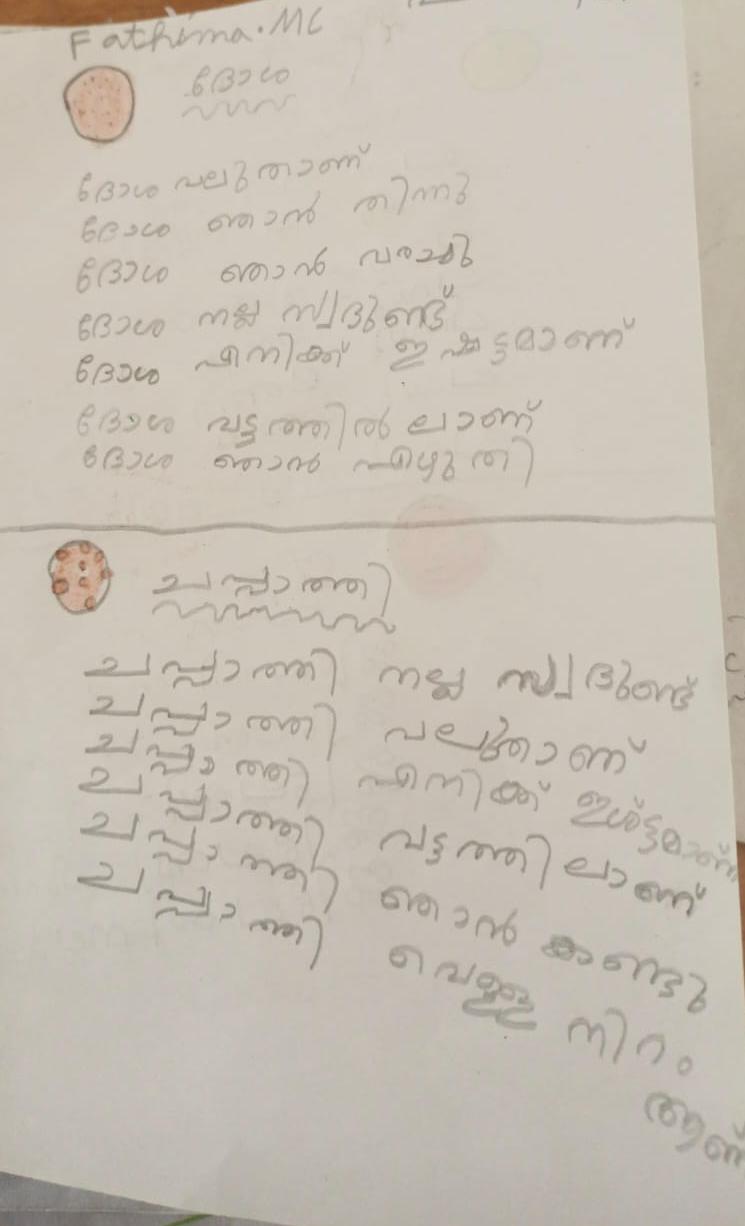 Fathima.MC
ദോശ
ദോശ വലുതാണ്
ദോശ ഞാൻ തിന്നു
ദോശ ഞാൻ വരച്ചു
ദോശ നല്ല സ്വദുണ്ട്
ദോശ എനിക്ക് ഇഷ്ടമാണ്
ദോശ വട്ടത്തിൽ ലാണ്
ദോശ ഞാൻ എഴുതി
ചപ്പാത്തി
ചപ്പാത്തി നല്ല സ്വദുണ്ട്
ചപ്പാത്തി വലുതാണ്
ചപ്പാത്തി എനിക്ക് ഇഷ്ട്ടമാണ്
ചപ്പാത്തി വട്ടത്തിലാണ്
ചപ്പാത്തി ഞാൻ കണ്ടു
ചപ്പാത്തി വെള്ള നിറം
ആണ്